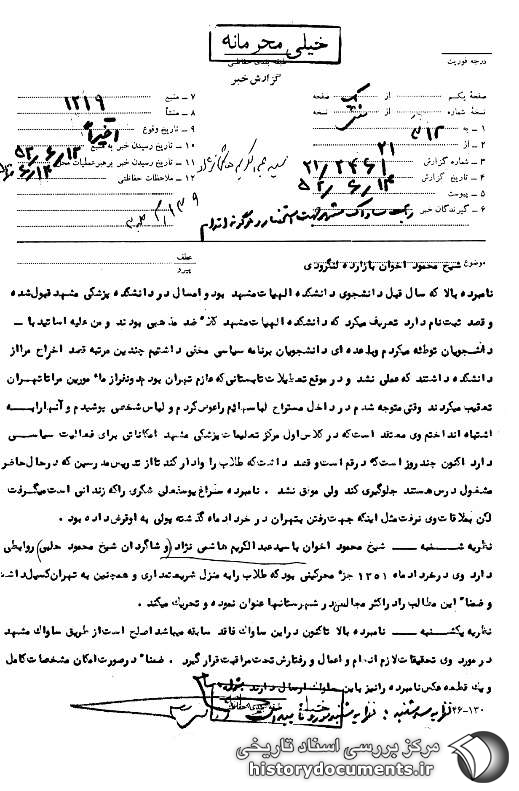 خیلی محرمانه
طبقه بندی حفاظتی
درجه فوریت
گزارش خبر
صفحه یکم از یک صفحه
نسخه شماره از نسخه
۱ ـ به ۳۱۲
۲ ـ از ۲۱
۳ ـ شماره گزارش ۲۱/۲۴۶۱
۴ ـ تاریخ گزارش ۵۲/۶/۱۴
۵ ـ پیوست
۶ ـ گیرندگان خبر
۷ ـ منبع ۱۲۱۹
۸ ـ منشأ
۹ ـ تاریخ وقوع اخیراً
۱۰ ـ تاریخ رسیدن خبر به منبع ۵۲/۶/۱۲
۱۱ ـ تاریخ رسیدن خبر برهبر عملیات ۶/۱۴
۱۲ ـ ملاحظات حفاظتی
موضوع شیخ محمود اخوان بازارده لنگرودی
عطف
پیرو
نامبرده بالا که سال قبل دانشجوی دانشکده الهیات مشهد بود و امسال در دانشکده پزشکی مشهد قبول شده
و قصد ثبت نام دارد تعریف میکرد که دانشکده الهیات مشهد کلاً ضد مذهبی بودند و من علیه اساتید با ـ
دانشجویان توطئه میکردم و با عده ای دانشجویان برنامه سیاسی مخفی داشتیم چندین مرتبه قصد اخراج مرا از
دانشکده داشتند که عملی نشد و در موقع تعطیلات تابستانی که عازم تهران بودم دو نفر از مأمورین مرا تا تهران
تعقیب میکردند وقتی متوجه شدم در داخل مستراح لباسهایم را عوض کردم و لباس شخصی پوشیدم و آنها را به
اشتباه انداختم وی معتقد است که در کلاس اول مرکز تعلیمات پزشکی مشهد امکاناتی برای فعالیت سیاسی
دارد اکنون چند روز است که در قم است و قصد داشت که طلاب را وادار کند تا از تدریس مدرسین که در حال حاضر
مشغول درس هستند جلوگیری کند ولی موفق نشد . نامبرده سراغ یوسفعلی شکری را که زندانی است میگرفت
لکن بملاقات وی نرفت مثل اینکه جهت رفتن بتهران در خرداد ماه گذشته پولی به او قرض داده بود .
نظریه شنبه ـ شیخ محمود اخوان با سید عبدالکریم هاشمی نژاد و شاگردان شیخ محمود حلبی روابطی
دارد وی در خرداد ماه ۱۳۵۱ جزء محرکینی بود که طلاب را به منزل شریعتمداری و همچنین به تهران گسیل داشت
و ضمناً این مطالب را در اکثر مجالس در شهرستانها عنوان نموده و تحریک میکند .
نظریه یکشنبه ـ نامبرده بالا تاکنون در این ساواک فاقد سابقه میباشد اصلح است از طریق ساواک مشهد
در مورد وی تحقیقات لازم انجام و اعمال و رفتارش تحت مراقبت قرار گیرد . ضمناً در صورت امکان مشخصات کامل
و یک قطعه عکس نامبرده را نیز باین ساواک ارسال دارند
۲۶-۱۳۰
طبقه بندی حفاظتی
مرکز بررسی اسناد تاریخی
historydocuments.ir